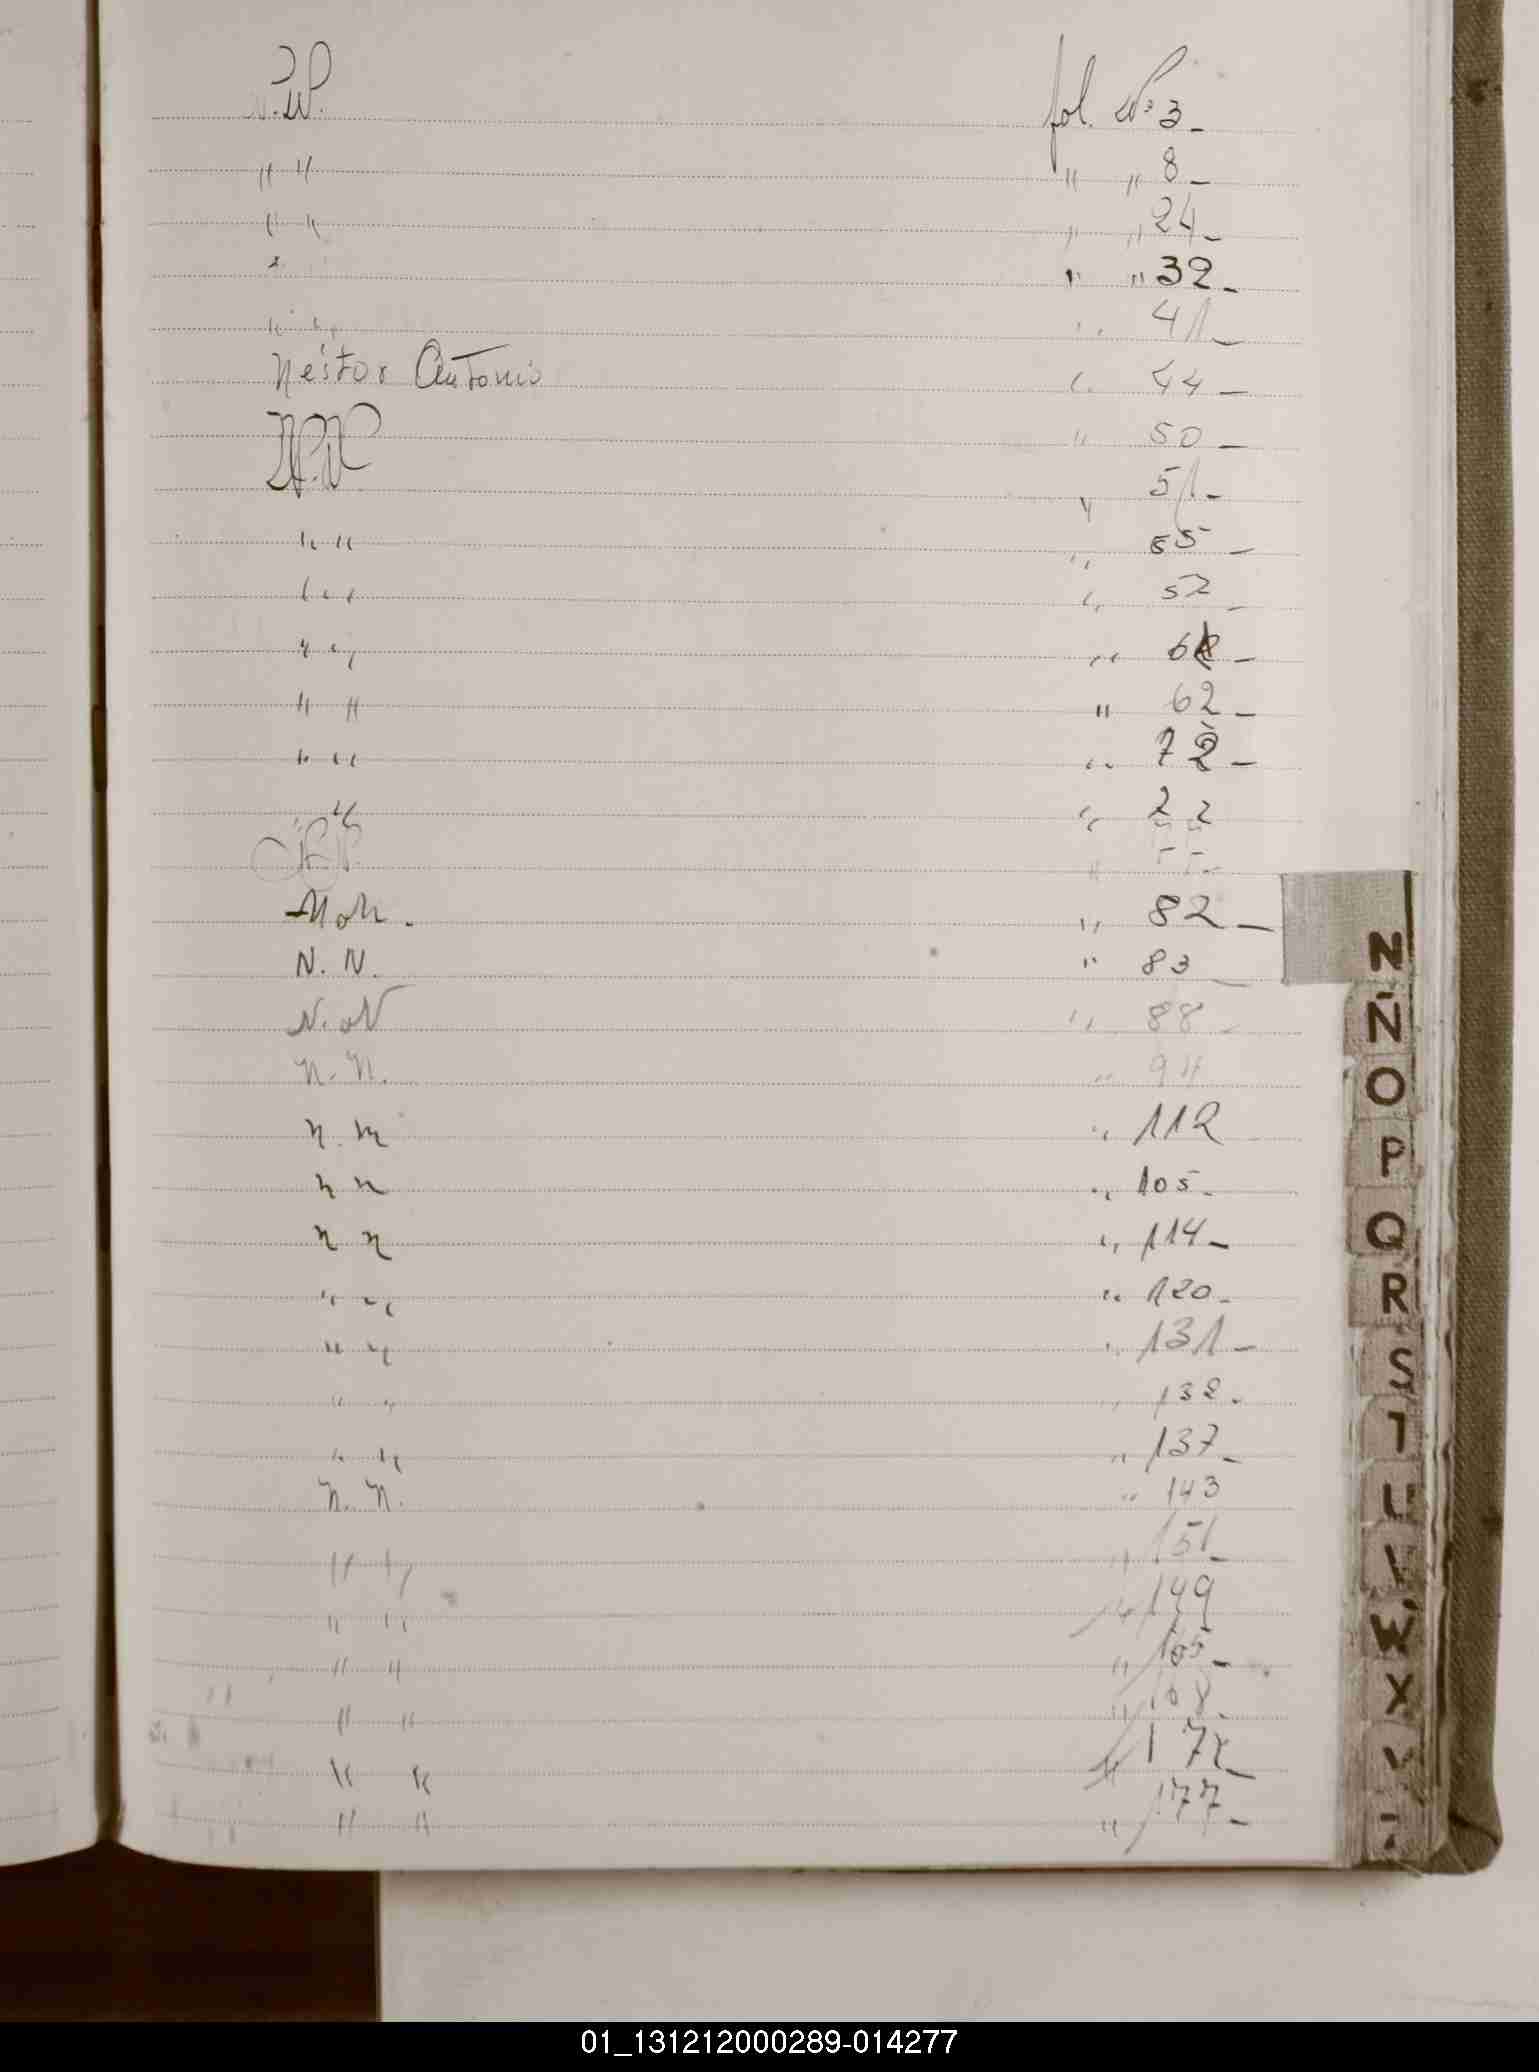 N.N. fol. Nº 3-
" " " " 8-
" " " " 24-
" " " 32-
" " " 41-
Néstor Antonio " 44-
N.N. " 50-
" 51-
" " " 55-
" " " 57
" " "
" " " 62-
" " " 72-
" " 22
N.N. "
N.N. " 82-
N. N. " 83
N. N " 88-
N. N. " 94
n. n " 112
n n " 105-
n n " 114-
" " " 120-
" " " 131-
" " " 132-
" " " 137-
n. n. " 143
" " " 151-
" " " 149
" " " 165-
" " "
" " "
" " " 177-
N
Ñ
O
P
Q
R
S
T
U
V
W
X
Y
01_131212000289-014277